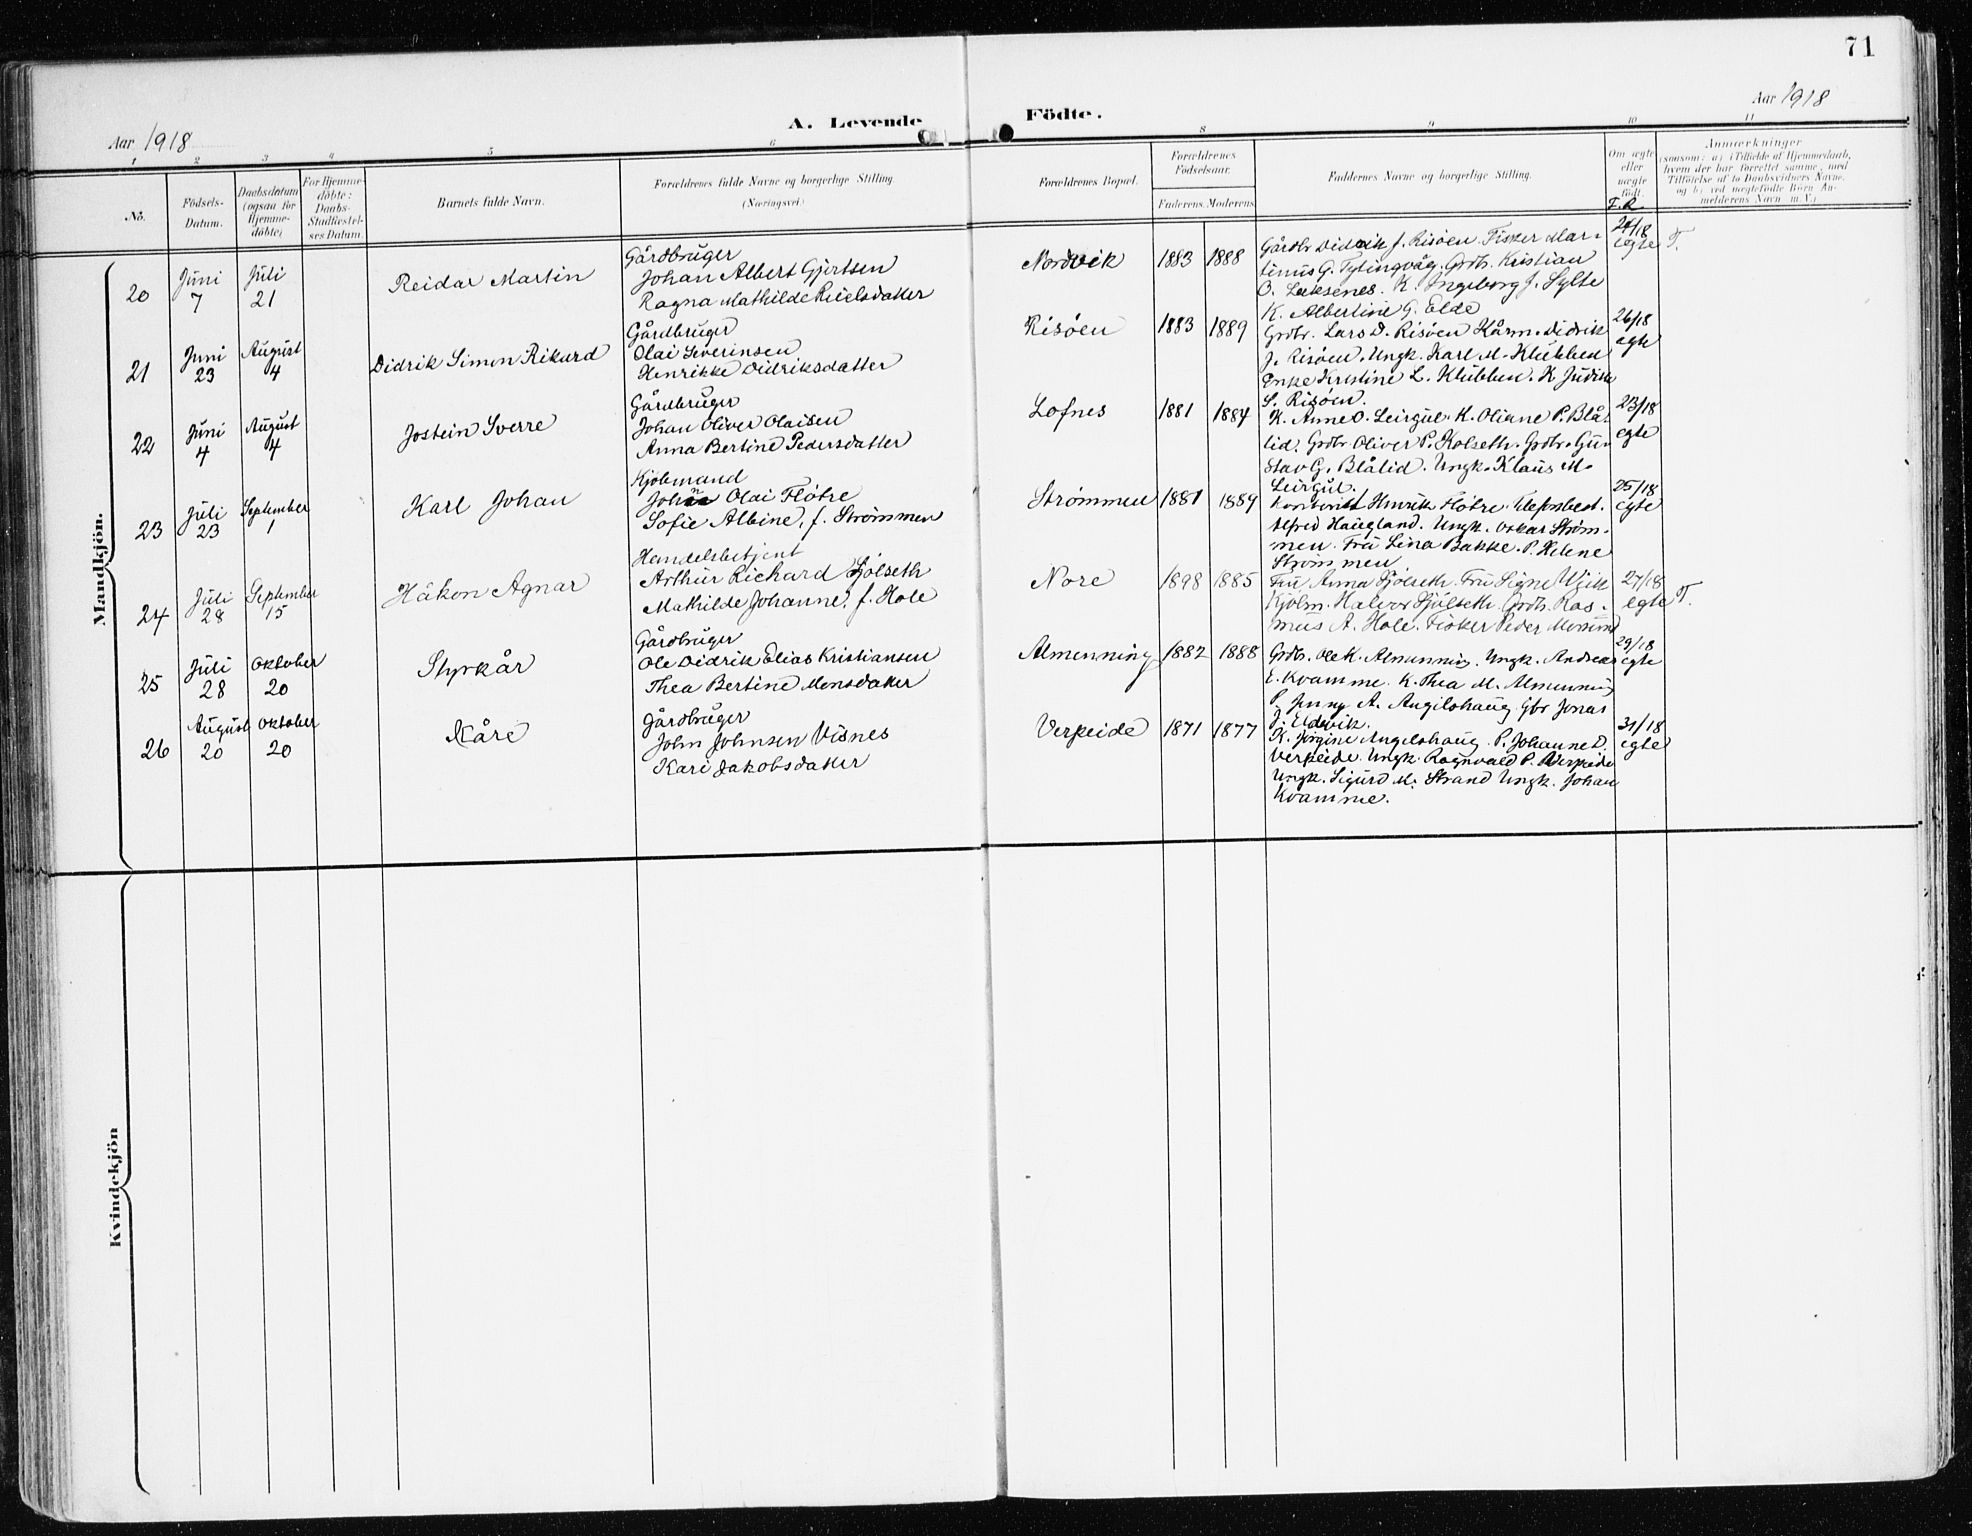 71
Aar 1918
A. Levende Födte.
Aar 1918
1 2 3 4 5 6 8 9 10 11
No.
Födsels-Datum.
Daabsdatum (ogsaa for Hjemme-döbte)
For Hjemme-döbte: Daabs-Stadfæstel-ses Datum.
Barnets fulde Navn.
Forældrenes fulde Navne og borgerlige Stilling.
(Næringsvei.)
Forældrenes Bopæl.
Forældrenes Födselsaar.
Faderens. Moderens.
Faddernes Navne og borgerlige Stilling.
Om ægte eller uægte födt.
Anmærkninger
(saasom: a) i Tilfælde af Hjemmedaab,
hvem der har forrettet samme, med
Tilföielse af to Daabsvidners Navne,
og b) ved uægtefödte Börn An-
melderens Navn m. V.)
F.R.
Mandkjön.
20 Juni 7 Juli 21 Reidar Martin
Gårdbruger
Johan Albert Gjertsen
Ragna Mathilde
Nordvik 1883 1888
Gårdbr. Didrik J. Risöen. Fisker Mar-
tinus G. Tytingvåg. Grdb. Kristian
O. K. Ingeborg J. Sylte
K. Albertine G. Elde
24/18 egte T.
21 Juni 23 August 4 Didrik Simon Rikard
Gårdbruger
Olai Severinsen
Henrikke Didriksdatter
Risöen 1883 1889
Grdbr. Lars D. Risöen Kårm. Didrik
J. Risöen. Ungk. Karl M. Klubben
Enke Kristine L. Klubben. K Judith
S. Risöen.
26/18 egte
22 Juni 4 August 4 Jostein Sverre
Gårdbruger
Johan Oliver Olaisen
Anna Bertine Pedersdatter
Lofnes 1881 1884
K. Anne O. Leirgul. K. Oliane P. Blå-
lid. Grdbr. Oliver P. Kolseth. Grdbr. Gu-
stav G. Blålid. Ungk. Klaus M.
Leirgul.
23/18 egte
23 Juli 23 September 1 Karl Johan
Kjöbmand
Olai Flötre
Sofie Albine, f. Strömmen
Strömmen 1881 1889
Kontorist Henrik Flötre. Telefonbest.
Alfred Haugland. Ungk. Oskar Ström-
men. Fru Lina Bakke. P. Helene
Strömmen
25/18 egte
24 Juli 28 September 15 Håkon Agnar
Handelsbetjent
Arthur Richard Sjölseth
Mathilde Johanne, f. Hole
Nore 1898 1885
Fru Anna Sjölseth. Fru Signe
Kjölm. Halvor Sjölseth. Grdb. Ras-
mus A. Hole. Fisker Peder
27/18 egte T.
25 Juli 28 Oktober 20 Styrkår
Gårdbruger
Ole Didrik Elias Kristiansen
Thea Bertine Monsdatter
Almenning 1882 1888
Grdb. Ole K. Almenning. Ungk. Andreas
E. Kvamme. K. Thea M. Almenning
P. Jenny A. Angilshaug. Gbr Jonas
J. Eldevik.
29/18 egte
26 August 20 Oktober 20 Kåre
Gårdbruger
John Johnsen Visnes
Kari Jakobsdatter
Verpeide 1871 1877
K. Jörgine Angelshaug. P. Johanne D.
Verpeide. Ungk. Ragnvald P. Verpeide
Ungk. Sigurd M. Strand Ungk. Johan
Kvamme.
31/18 egte
Kvindekjön